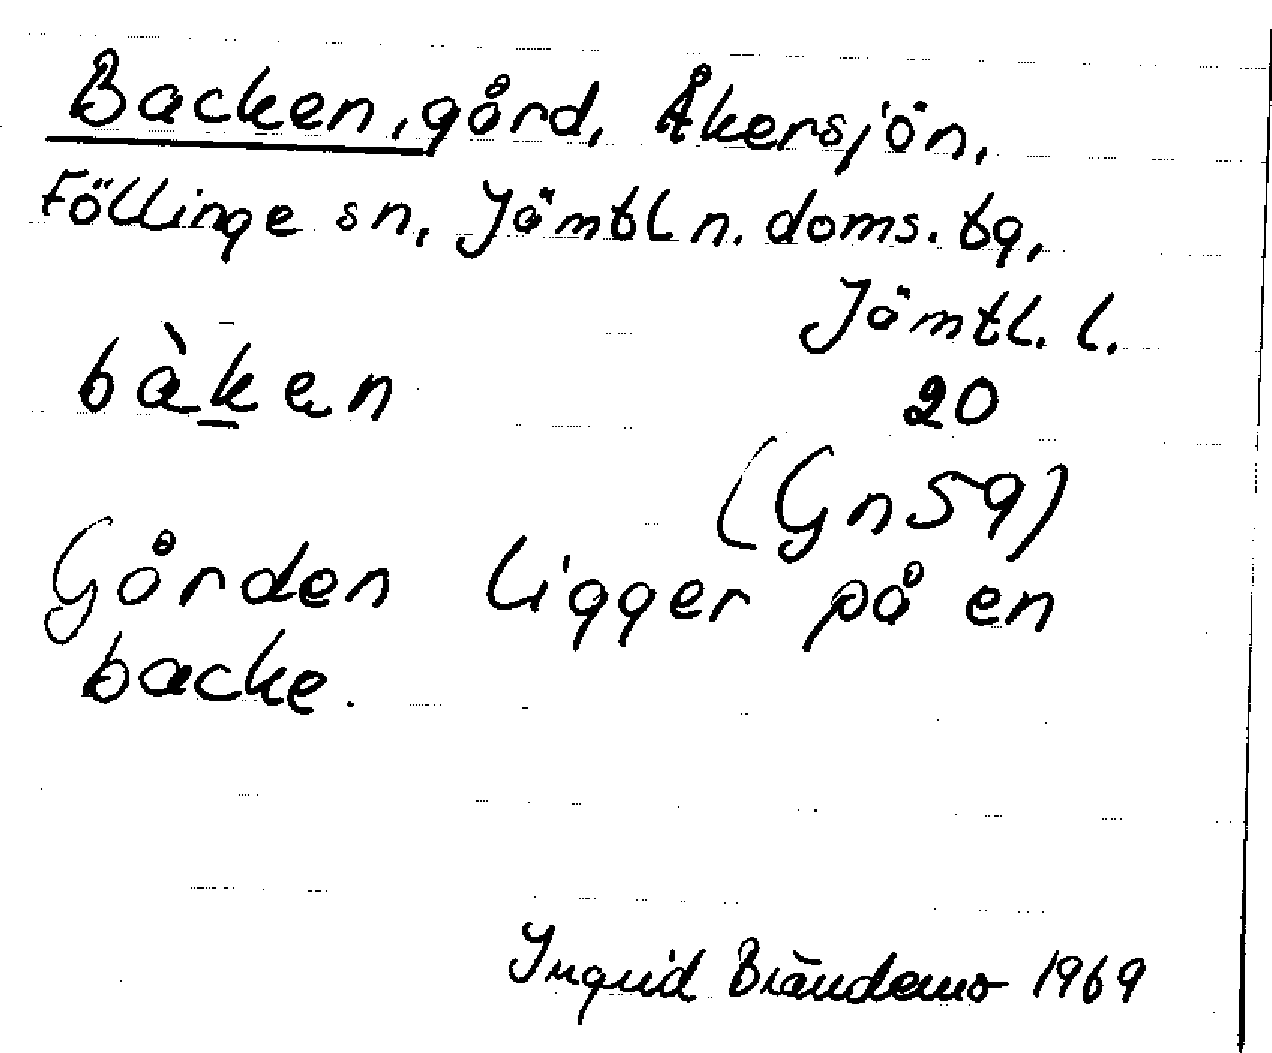 Backen, gård, Åkersjön,
Föllinge sn, Jämtl n. doms. tg,
Jämtl. l.
bàken
20
(Gn 59)
Gården ligger på en
backe.
Ingrid Brändemo 1969